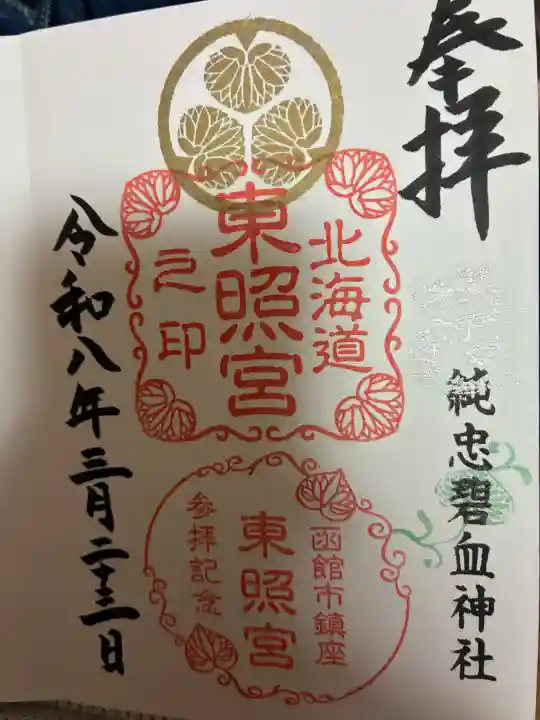 奉拝
純忠碧血神社
北海道
東照宮
之印
函館市鎮座
東照宮
参拝記念
令和八年三月二十三日